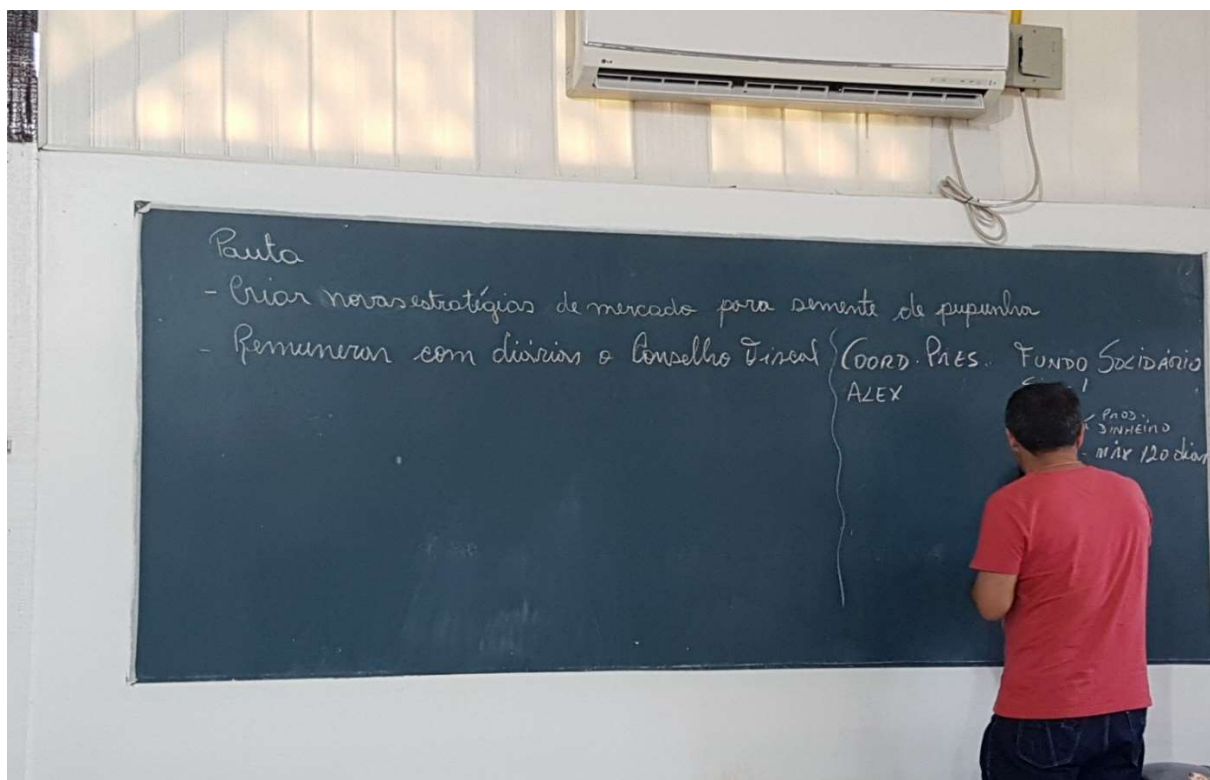 Pauta
- Criar novas estratégias de mercado para semente de pupunha
- Remunerar com diárias o Conselho Fiscal
COORD. PRES.
ALEX
FUNDO SOLIDÁRIO
PROD.
DINHEIRO
- MÁX 120 dias
LG